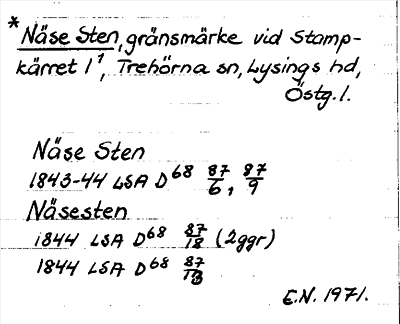 * Näse Sten, gränsmärke vid Stamp-
kärret 1¹, Trehörna sn, Lysings hd,
Östg.l.
Näse Sten
1843-44 LSA D68 87/6, 87/9
Näsesten
1844 LSA D68 87/18 (2ggr)
1844 LSA D68 87/
E.N. 1971.